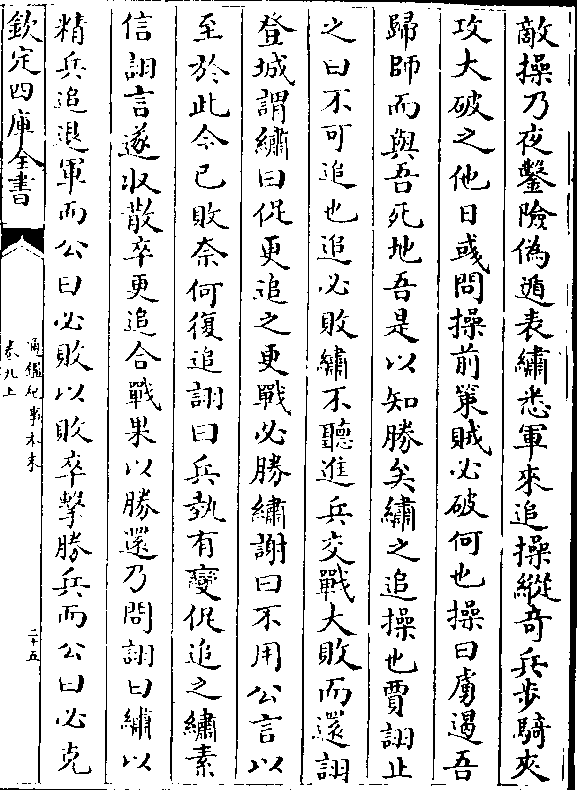 敵操乃夜鑿險偽遁表繡悉軍來追操縱奇兵步騎夾
攻大破之他日彧問操前策賊必破何也操曰虜遏吾
歸師而與吾死地吾是以知勝矣繡之追操也賈詡止
之曰不可追也追必敗繡不聽進兵交戰大敗而還詡
登城謂繡曰促更追之更戰必勝繡謝曰不用公言以
至於此今已敗奈何復追詡曰兵埶有變促追之繡素
信詡言遂收散卒更追合戰果以勝還乃問詡曰繡以
精兵追退軍而公曰必敗以敗卒擊勝兵而公曰必克
欽定四庫全書
通鑑紀事本末
卷九上
二十五